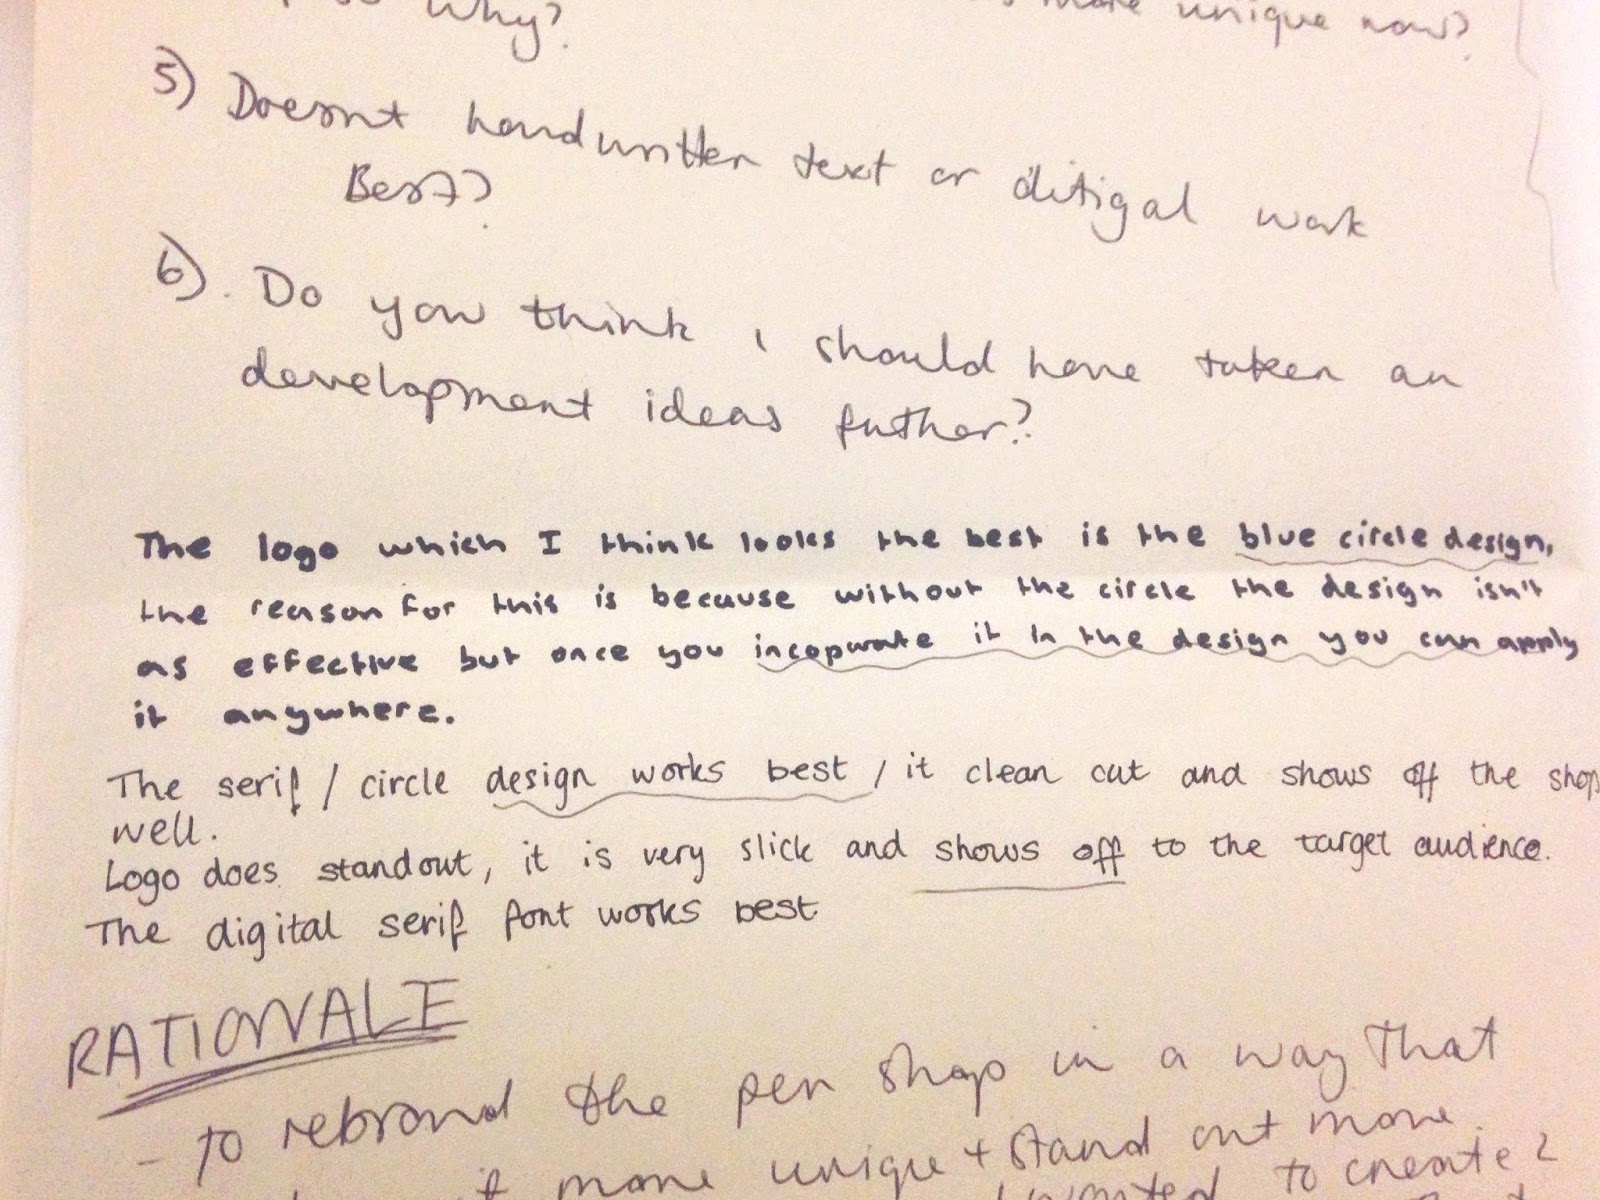 Why? more unique now?
5) Doesnt handwritten text or ditigal work
Best?
6). Do you think I should have taken an
development ideas futher?
The logo which I think looks the best is the blue circle design,
the reason for this is because without the circle the design isn't
as effective but once you incopurate it in the design you can apply
it anywhere.
The serif / circle design works best / it clean cut and shows off the shop
well.
Logo does standout, it is very slick and shows off to the target audience.
The digital serif font works best
RATIONALE
- To rebrand the pen shop in a way that
it more unique + stand out more.
wanted to create 2